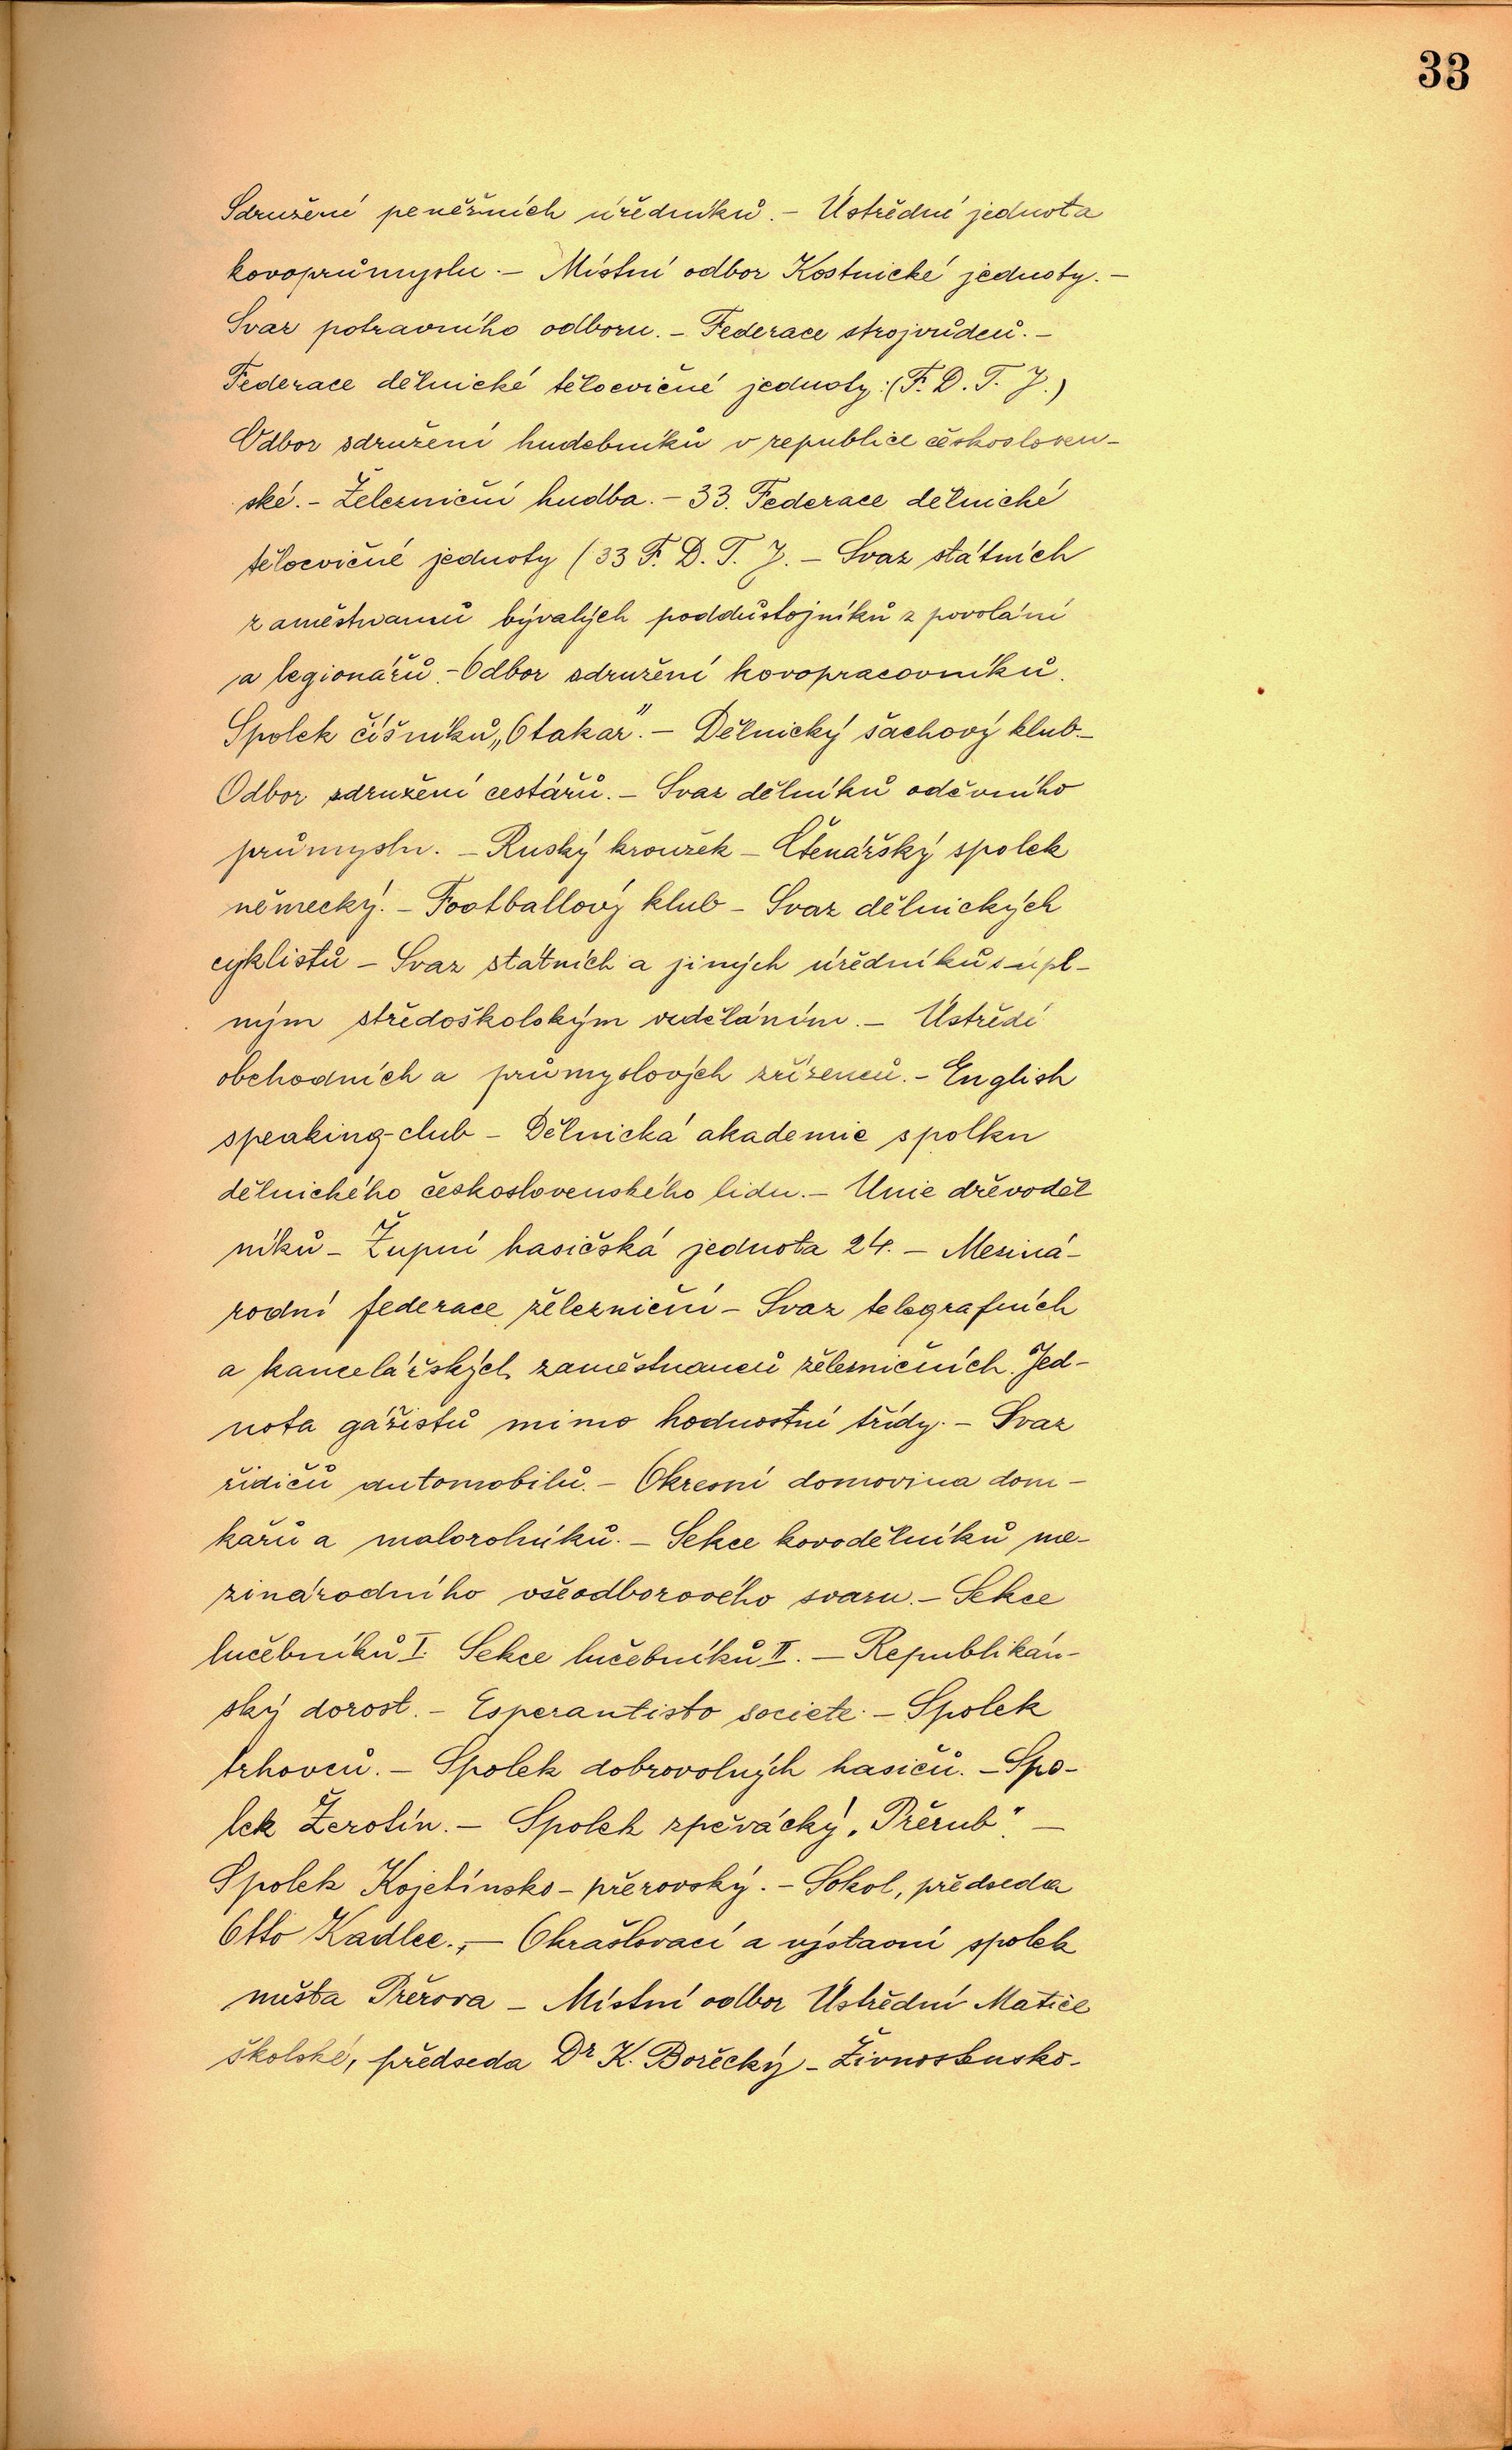 33
Sdružení peněžních úředníků. – Ústřední jednota
kovoprůmyslu. – Místní odbor Kostnické jednoty. –
Svaz potravního odboru. – Federace strojvůdců. –
Federace dělnické tělocvičné jednoty. (F. D. T. J.)
Odbor sdružení hudebníků v republice českosloven-
ské. – Železniční hudba. – 33. Federace dělnické
tělocvičné jednoty (33 F. D. T. J. – Svaz státních
zaměstnanců bývalých poddůstojníků z povolání
a legionářů. – Odbor sdružení kovopracovníků.
Spolek číšníků „Otakar". – Dělnický šachový klub. –
Odbor sdružení cestářů. – Svaz dělníků oděvního
průmyslu. – Ruský kroužek – Čtenářský spolek
německý. – Footballový klub – Svaz dělnických
cyklistů – Svaz státních a jiných úředníků s úpl-
ným středoškolským vzděláním. – Ústředí
obchodních a průmyslových zřízenců. – English
speaking-club – Dělnická akademie spolku
dělnického československého lidu. – Unie dřevoděl
níků – Župní hasičská jednota 24. – Meziná-
rodní federace železniční – Svaz telegrafních
a kancelářských zaměstnanců železničních. Jed-
nota gážistů mimo hodnostní třídy. – Svaz
řidičů automobilů. – Okresní domovina dom-
kářů a malorolníků. – Sekce kovodělníků me-
zinárodního všeodborového svazu. – Sekce
lučebníků I. Sekce lučebníků II. – Republikán-
ský dorost. – Esperantisto societe. – Spolek
trhovců. – Spolek dobrovolných hasičů. – Spo-
lek Žerotín. – Spolek zpěvácký „Přerub" –
Spolek Kojetínsko – přerovský. – Sokol, předseda
Otto Kadlec., – Okrašlovací a výstavní spolek
města Přerova – Místní odbor Ústřední Matice
školské, předseda Dr K. Borěcký – Živnostensko-